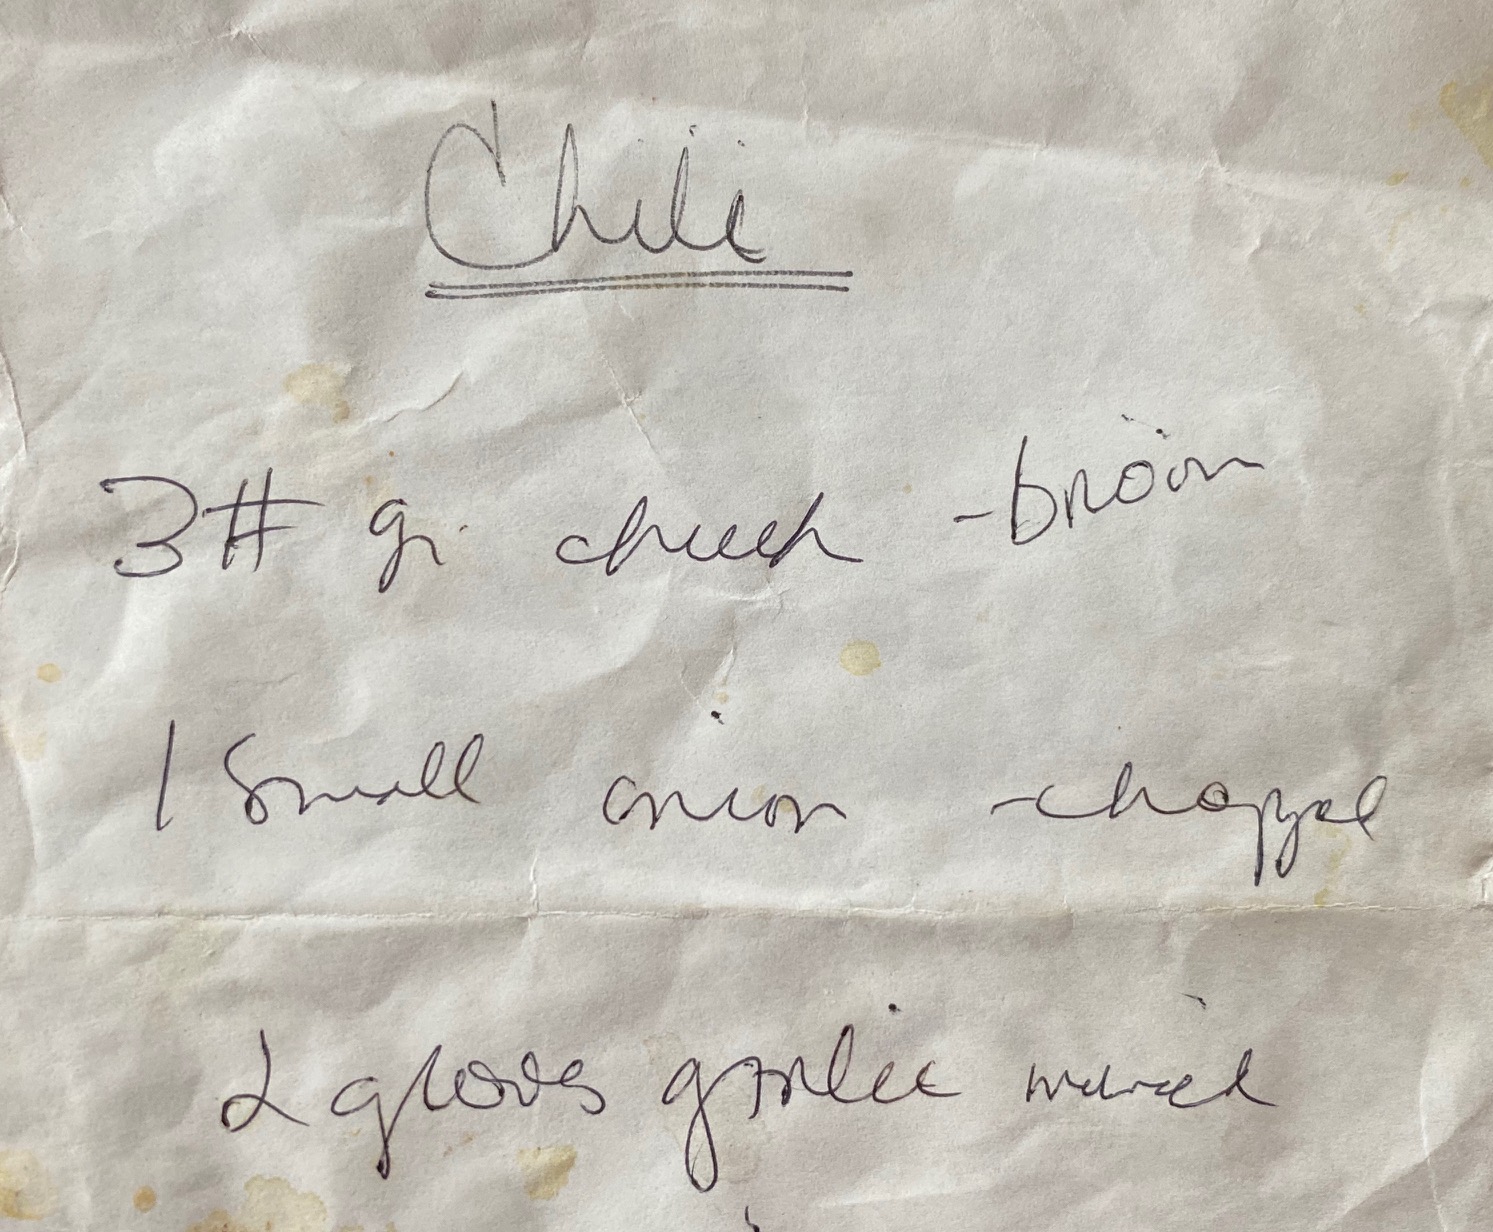 Chili
3# gr. chuck - brown
1 small onion - chopped
2 gloves garlic minced